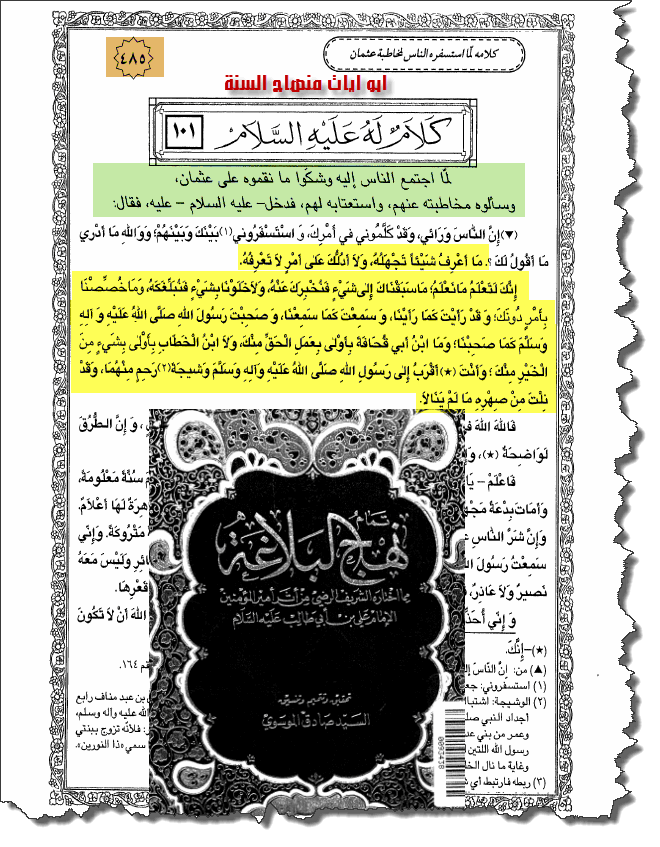 كلامه لمّا استسفره الناس لمخاطبة عثمان
٤٨٥
ابو ايات منهاج السنة
كَلَامٌ لَهُ عَلَيْهِ السَّلَام
١٠١
لمّا اجتمع الناس إليه وشكَوا ما نقموه على عثمان،
وسألوه مخاطبته عنهم، واستعتابه لهم، فدخل- عليه السلام - عليه، فقال:
(▼)إِنَّ النَّاسَ وَرَائِي، وَقَدْ كَلَّمُونِي فِي أَمْرِكَ، وَ اسْتَسْفَرُونِي(١)بَيْنَكَ وَبَيْنَهُمْ؛ وَوَاللهِ مَا أَدْرِي
مَا أَقُولُ لَكَ؟. مَا أَعْرِفُ شَيْئاً تَجْهَلُهُ، وَلَا أَدُلُّكَ عَلَى أَمْرٍ لَا تَعْرِفُهُ.
إِنَّكَ لَتَعْلَمُ مَا نَعْلَمُ؛ مَا سَبَقْنَاكَ إِلَى شَيْءٍ فَنُخْبِرَكَ عَنْهُ، وَلَا خَلَوْنَا بِشَيْءٍ فَنُبَلِّغَكَهُ، وَمَا خُصِّصْنَا
بِأَمْرٍ دُونَكَ؛ وَ قَدْ رَأَيْتَ كَمَا رَأَيْنَا، وَ سَمِعْتَ كَمَا سَمِعْنَا، وَ صَحِبْتَ رَسُولَ اللهِ صَلَّى اللهُ عَلَيْهِ وَ آلِهِ
وَ سَلَّمَ كَمَا صَحِبْنَا؛ وَمَا ابْنُ أَبِي قُحَافَةَ بِأَوْلَى بِعَمَلِ الْحَقِّ مِنْكَ، وَلَا ابْنُ الْخَطَّابِ بِأَوْلَى بِشَيْءٍ مِنَ
الْخَيْرِ مِنْكَ؛ وَ أَنْتَ (★)أَقْرَبُ إِلَى رَسُولِ اللهِ صَلَّى اللهُ عَلَيْهِ وَآلِهِ وَسَلَّمَ وَشِيجَةَ(٢)رَحِمٍ مِنْهُمَا، وَقَدْ
نِلْتَ مِنْ صِهْرِهِ مَا لَمْ يَنَالَا.
فَاللهَ اللهَ ، وَ إِنَّ الطُّرُقَ
لَوَاضِحَةٌ (★)،
فَاعْلَمْ - سُنَّةً مَعْلُومَةً،
وَأَمَاتَ بِدْعَةً لَهَا أَعْلَامٌ.
وَإِنَّ شَرَّ النَّاسِ مَتْرُوكَةً. وَإِنِّي
سَمِعْتُ رَسُولَ وَلَيْسَ مَعَهُ
نَصِيرٌ وَلَا عَاذِرٌ، قَعْرِهَا.
وَ إِنِّي اللهَ أَنْ لَا تَكُونَ
تمام
نهج البلاغة
مما اختاره الشريف الرضي من كلام أمير المؤمنين
الإمام علي بن أبي طالب عليه السلام
تحقيق وتتميم وتنسيق
السيد صادق الموسوي
(★)-إِنَّكَ.
(▲) من: إِنَّ النَّاسَ ١٦٤.
(١) استسفروني: بن عبد مناف رابع
(٢) الوشيجة: الله عليه وآله وسلم،
أجداد النبي فلأنّه تزوج ببنتي
وعمر من بني سمي «ذا النورين».
رسول الله اللتين
وغاية ما نال
(٣) ربطه فارتبط